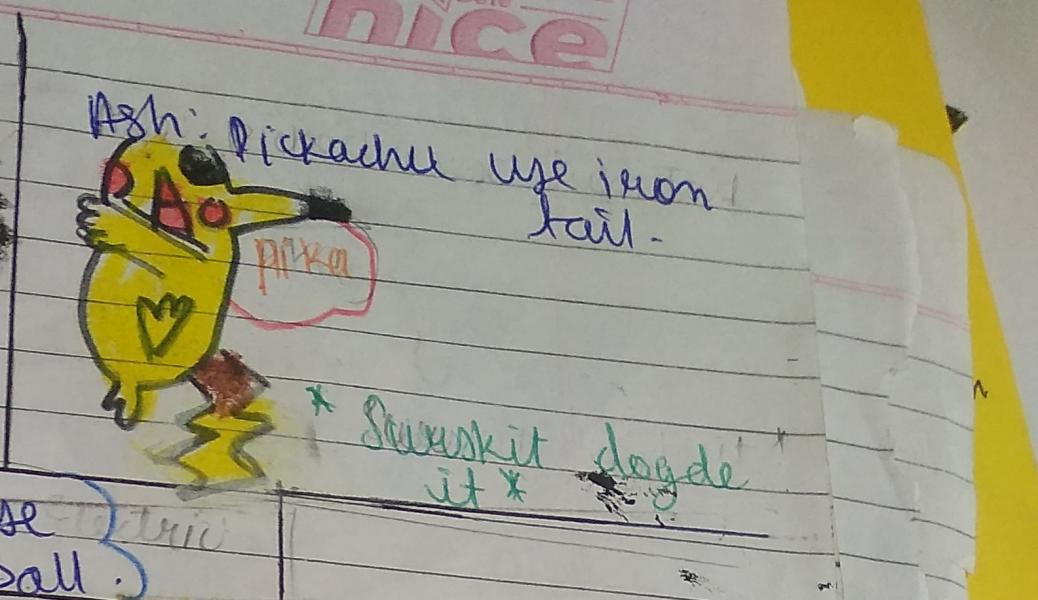 nice
Ash: Pickachu use iron
tail.
Pika
* Surskit dogde
it *
se
ball.